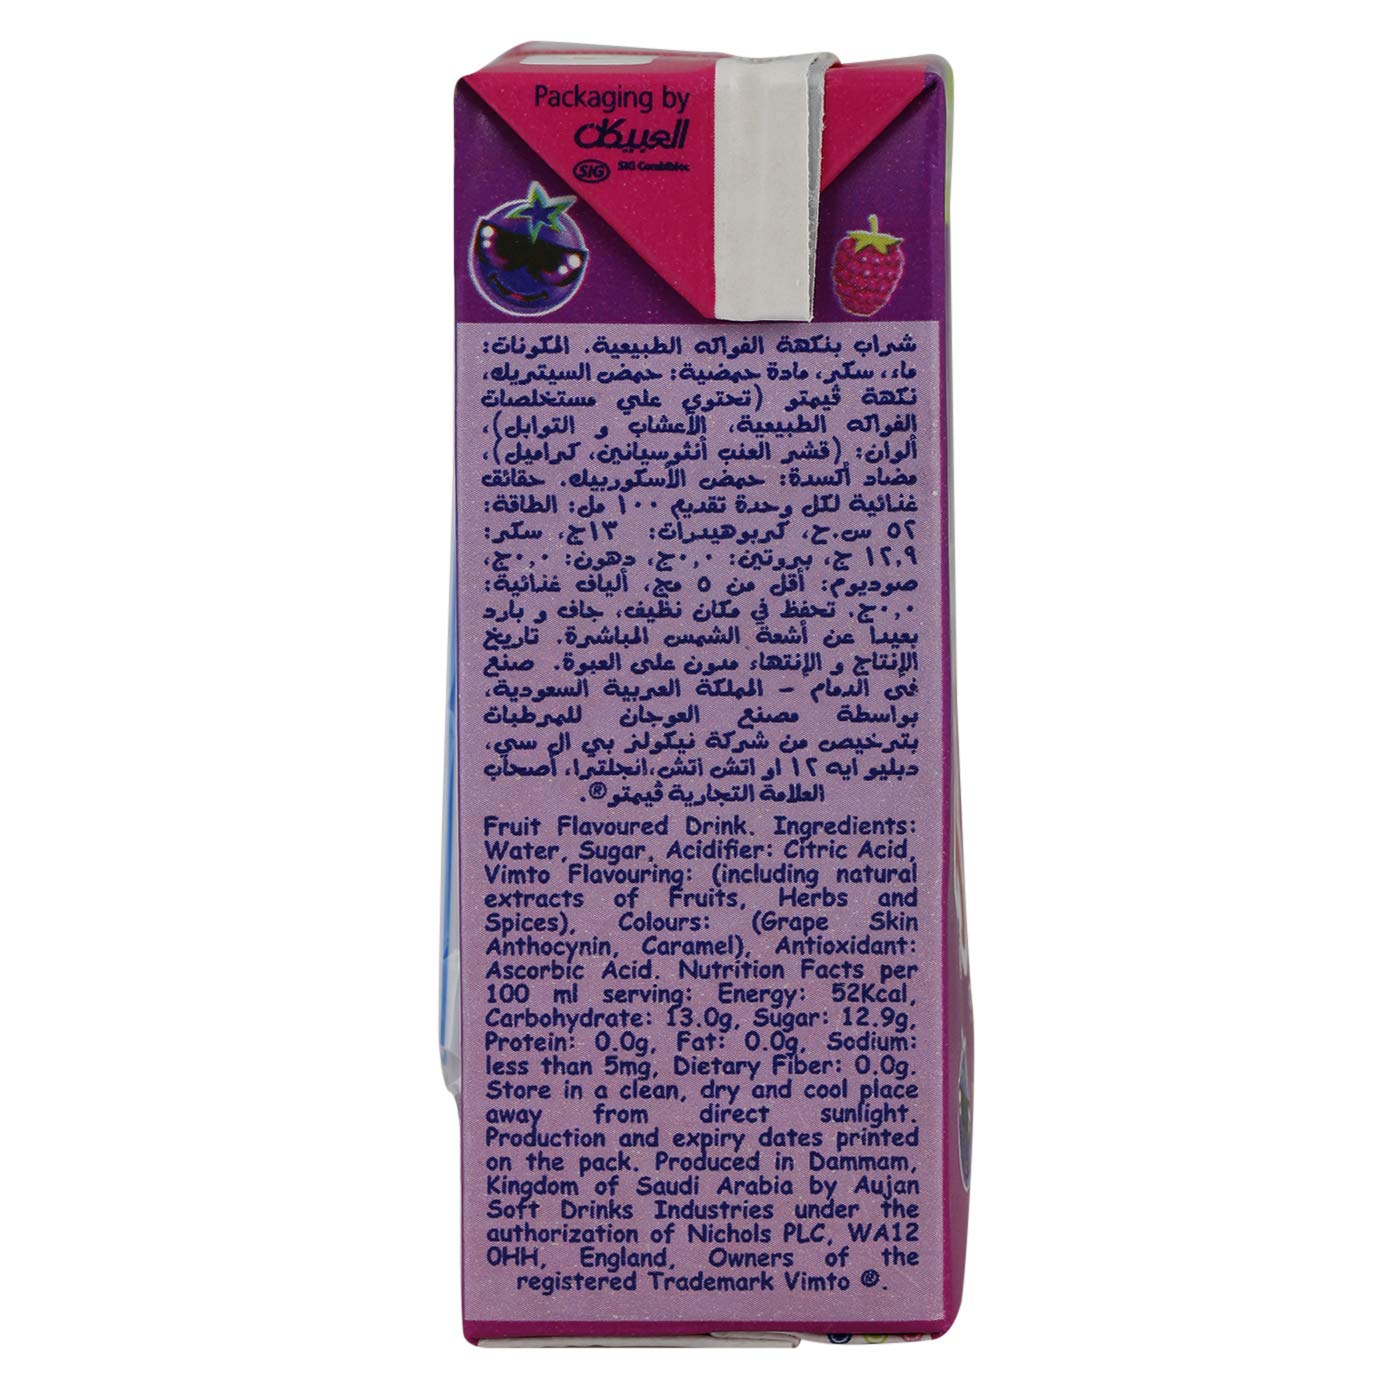 Packaging by
العبيكان
SIG SIG Combibloc
شراب بنكهة الفواكه الطبيعية. المكونات:
ماء، سكر، مادة حمضية: حمض السيتريك،
نكهة ڤيمتو (تحتوي علي مستخلصات
الفواكه الطبيعية، الأعشاب و التوابل)،
ألوان: (قشر العنب أنثوسيانين، كراميل)،
مضاد أكسدة: حمض الأسكوربيك. حقائق
غذائية لكل وحدة تقديم ١٠٠ مل: الطاقة:
٥٢ س.ح، كربوهيدرات: ١٣ج، سكر:
١٢,٩ ج، بروتين: ٠,٠ج، دهون: ٠,٠ج،
صوديوم: أقل من ٥ مج، ألياف غذائية:
٠,٠ج. تحفظ في مكان نظيف، جاف و بارد
بعيدا عن أشعة الشمس المباشرة. تاريخ
الإنتاج و الإنتهاء مدون على العبوة. صنع
في الدمام - المملكة العربية السعودية،
بواسطة مصنع العوجان للمرطبات
بترخيص من شركة نيكولز بي ال سي،
دبليو ايه ١٢ او اتش اتش،انجلترا، أصحاب
العلامة التجارية ڤيمتو®.
Fruit Flavoured Drink. Ingredients:
Water, Sugar, Acidifier: Citric Acid,
Vimto Flavouring: (including natural
extracts of Fruits, Herbs and
Spices), Colours: (Grape Skin
Anthocynin, Caramel), Antioxidant:
Ascorbic Acid. Nutrition Facts per
100 ml serving: Energy: 52Kcal,
Carbohydrate: 13.0g, Sugar: 12.9g,
Protein: 0.0g, Fat: 0.0g, Sodium:
less than 5mg, Dietary Fiber: 0.0g.
Store in a clean, dry and cool place
away from direct sunlight.
Production and expiry dates printed
on the pack. Produced in Dammam,
Kingdom of Saudi Arabia by Aujan
Soft Drinks Industries under the
authorization of Nichols PLC, WA12
0HH, England, Owners of the
registered Trademark Vimto ®.